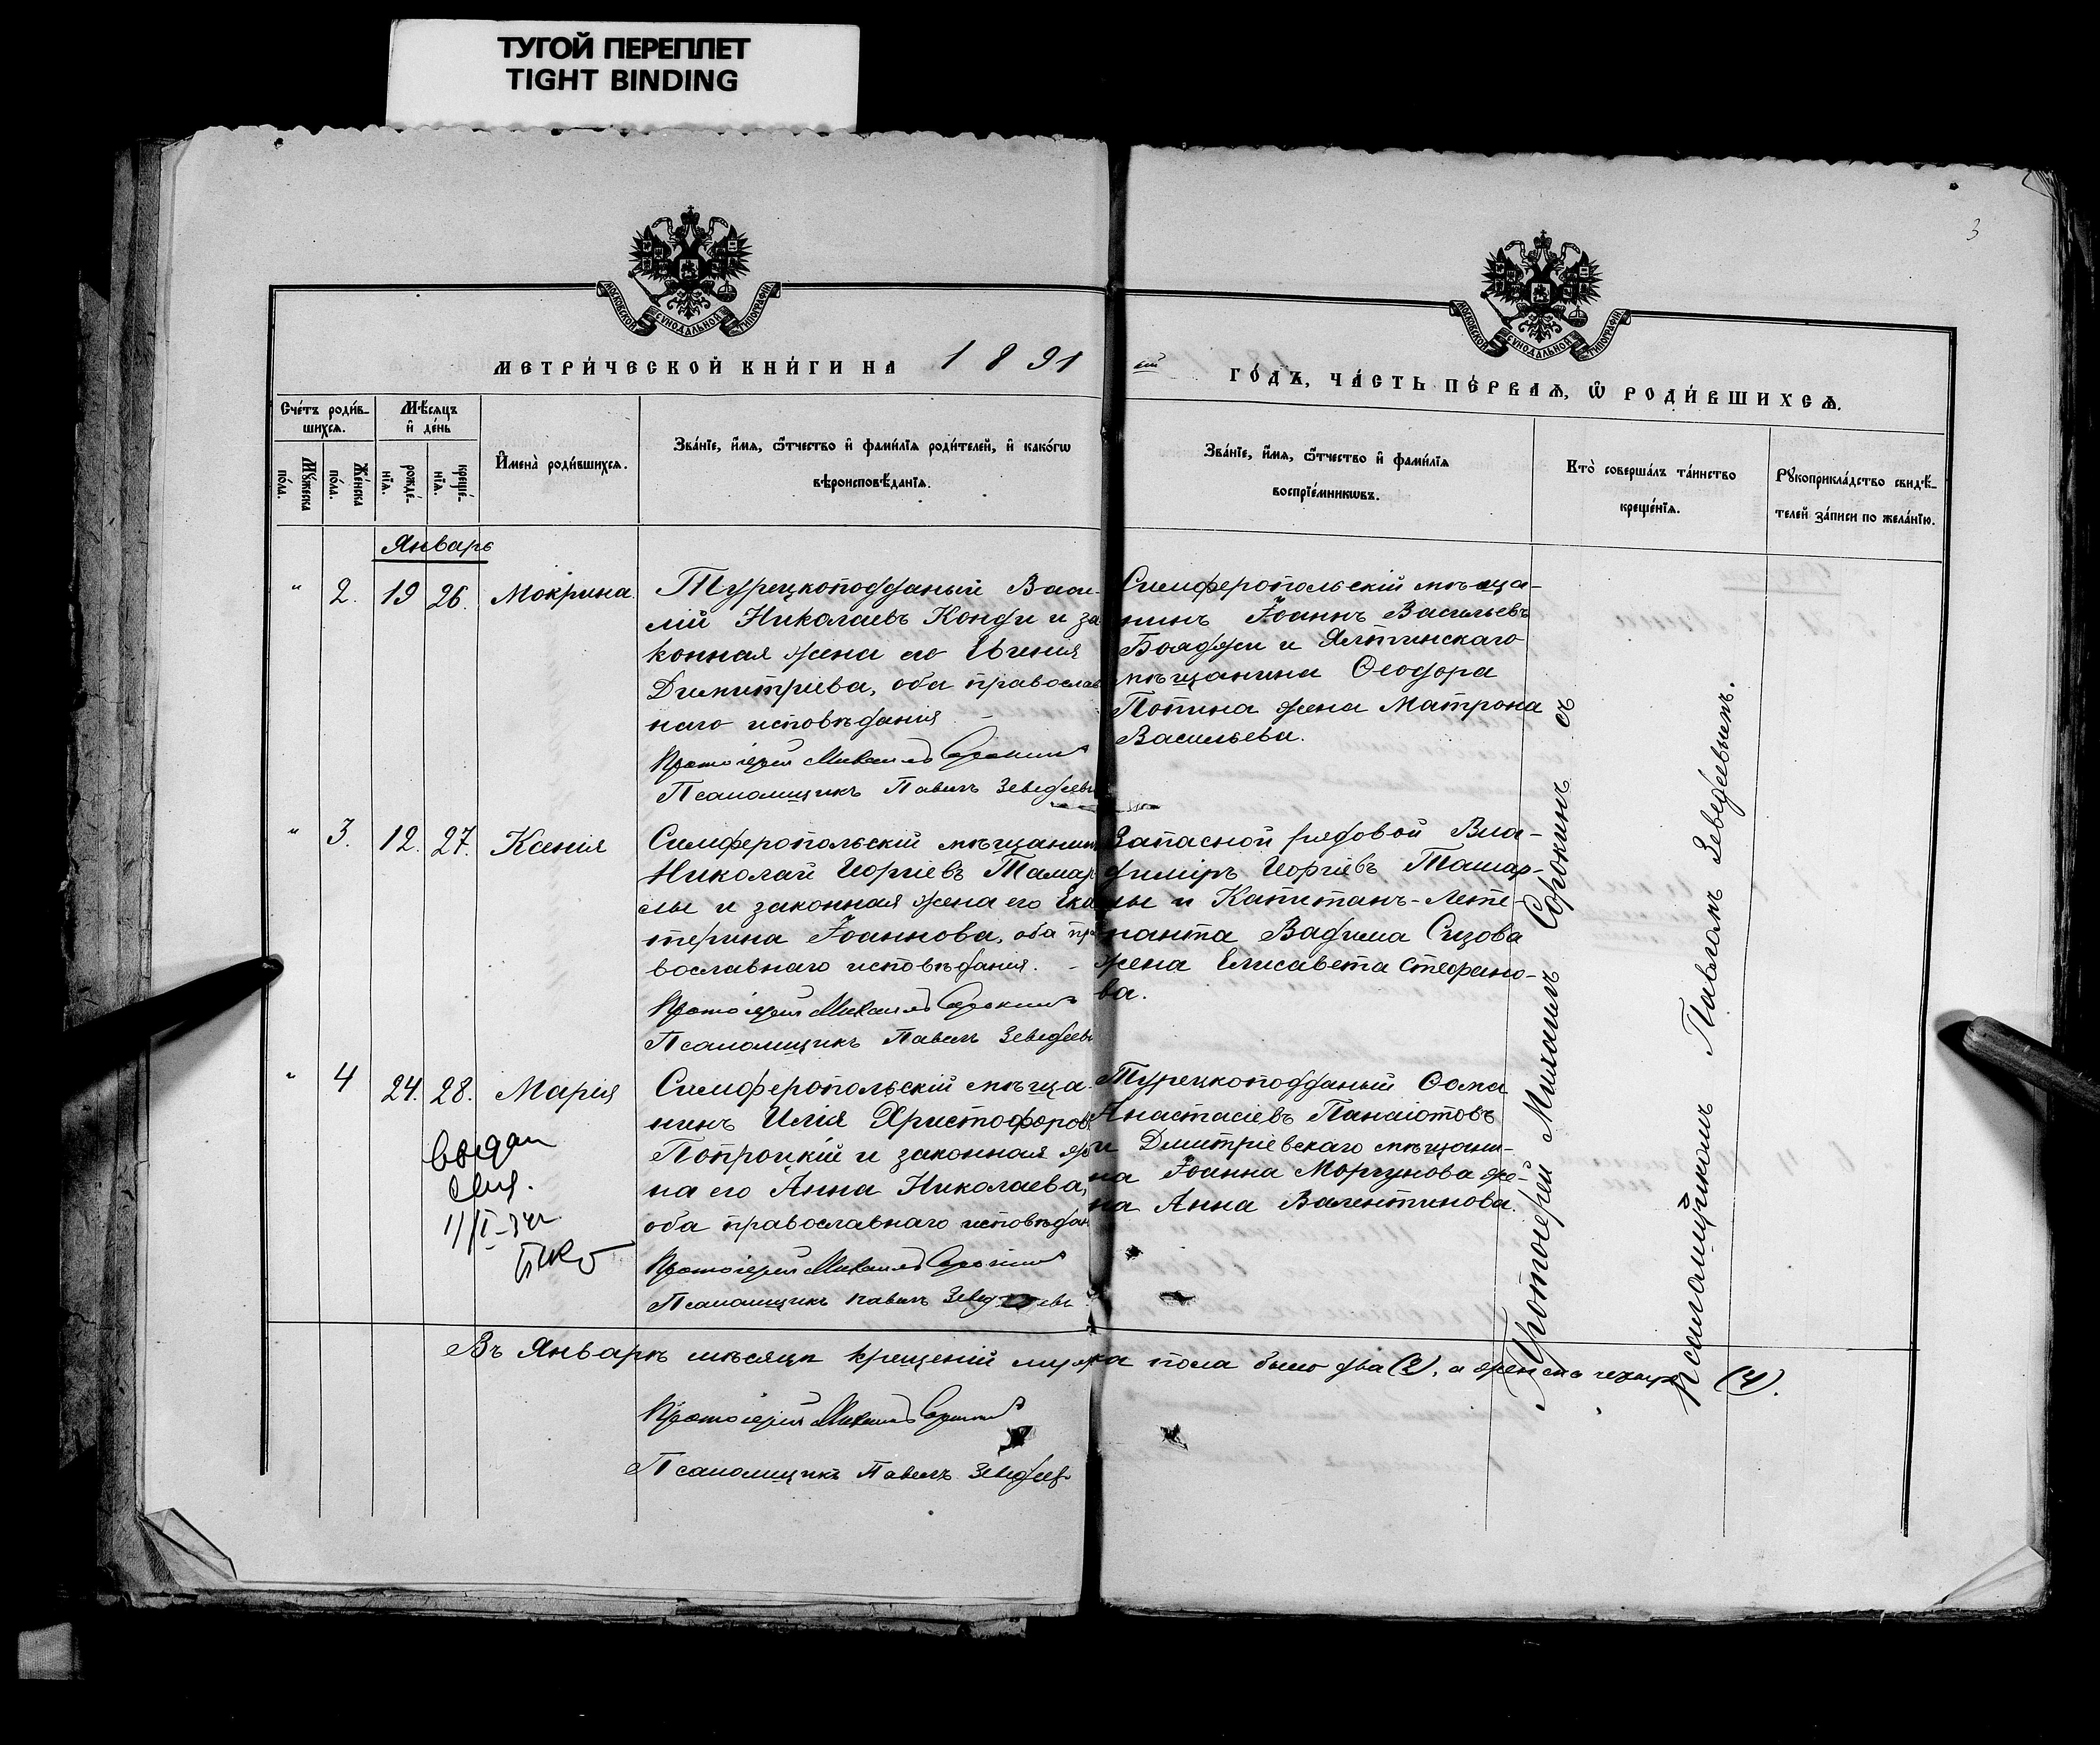 ТУГОЙ ПЕРЕПЛЕТ
TIGHT BINDING
3
МОСКОВСКОЙ СѴНОДАЛЬНОЙ ТИПОГРАФІИ
МОСКОВСКОЙ СѴНОДАЛЬНОЙ ТИПОГРАФІИ
МЕТРИ́ЧЕСКОЙ КНИ́ГИ НА 1891
ый ГО́ДЪ, ЧА́СТЬ ПЕ́РВАѦ, Ѡ҆ РОДИ́ВШИХСѦ.
Сче́тъ роди́в-
шихсѧ.
Мꙋ́жеска
по́ла.
Же́нска
по́ла.
Мѣ́сяцъ
и҆ де́нь
рожде́-
нїѧ.
креще́-
нїѧ.
И҆мена̀ роди́вшихсѧ.
Зва́нїе, и҆́мѧ, ѻ҆́тчество и҆ фами́лїѧ роди́телей, и҆ како́гѡ
вѣроисповѣ́данїѧ.
Зва́нїе, и҆́мѧ, ѻ҆́тчество и҆ фами́лїѧ
воспрїе́мникѡвъ.
Кто̀ соверша́лъ та́инство
креще́нїѧ.
Рꙋкоприкла́дство свидѣ́-
телей за́писи по жела́нїю.
Январь
" 2. 19 26. Мокрина.
Турецкоподданый Васи-
лій Николаевъ Конди и за
конная жена его Евгенія
Димитріева, оба православ
наго исповѣданія
Протоіерей Михаилъ Сорокинъ
Псаломщикъ Павелъ Зеведеевъ
Симферопольскій мѣща-
нинъ Іоаннъ Васильевъ
Бояджи и Ялтинскаго
мѣщанина Ѳеодора
Попина жена Матрона
Васильева.
" 3. 12. 27. Ксенія
Симферопольскій мѣщанин
Николай Георгіевъ Ташар
лы и законная жена его Ека
терина Іоаннова, оба пра
вославнаго исповѣданія.
Протоіерей Михаилъ Сорокинъ
Псаломщикъ Павелъ Зеведеевъ
Запасной рядовой Вла-
диміръ Георгіевъ Ташар-
лы и Капитанъ-Лейте-
нанта Вадима Сизова
жена Елисавета Стефано-
ва.
" 4 24. 28. Марія
выдан
11/I
Симферопольскій мѣща-
нинъ Илія Христофоровъ
Попроцкій и законная же
на его Анна Николаева,
оба православнаго исповѣдан
Протоіерей Михаилъ Сорокинъ
Псаломщикъ Павелъ Зеведеевъ
Турецкоподданый Ѳома
Анастасіевъ Панаіотовъ
и Дмитріевскаго мѣщани-
на Іоанна Моргунова же-
на Анна Валентинова.
Протоіерей Михаилъ Сорокинъ съ
псаломщикомъ Павломъ Зеведеевымъ.
Въ Январѣ мѣсяцѣ крещеній мужска пола было два (2), а женска четыре (4).
Протоіерей Михаилъ Сорокинъ
Псаломщикъ Павелъ Зеведеев